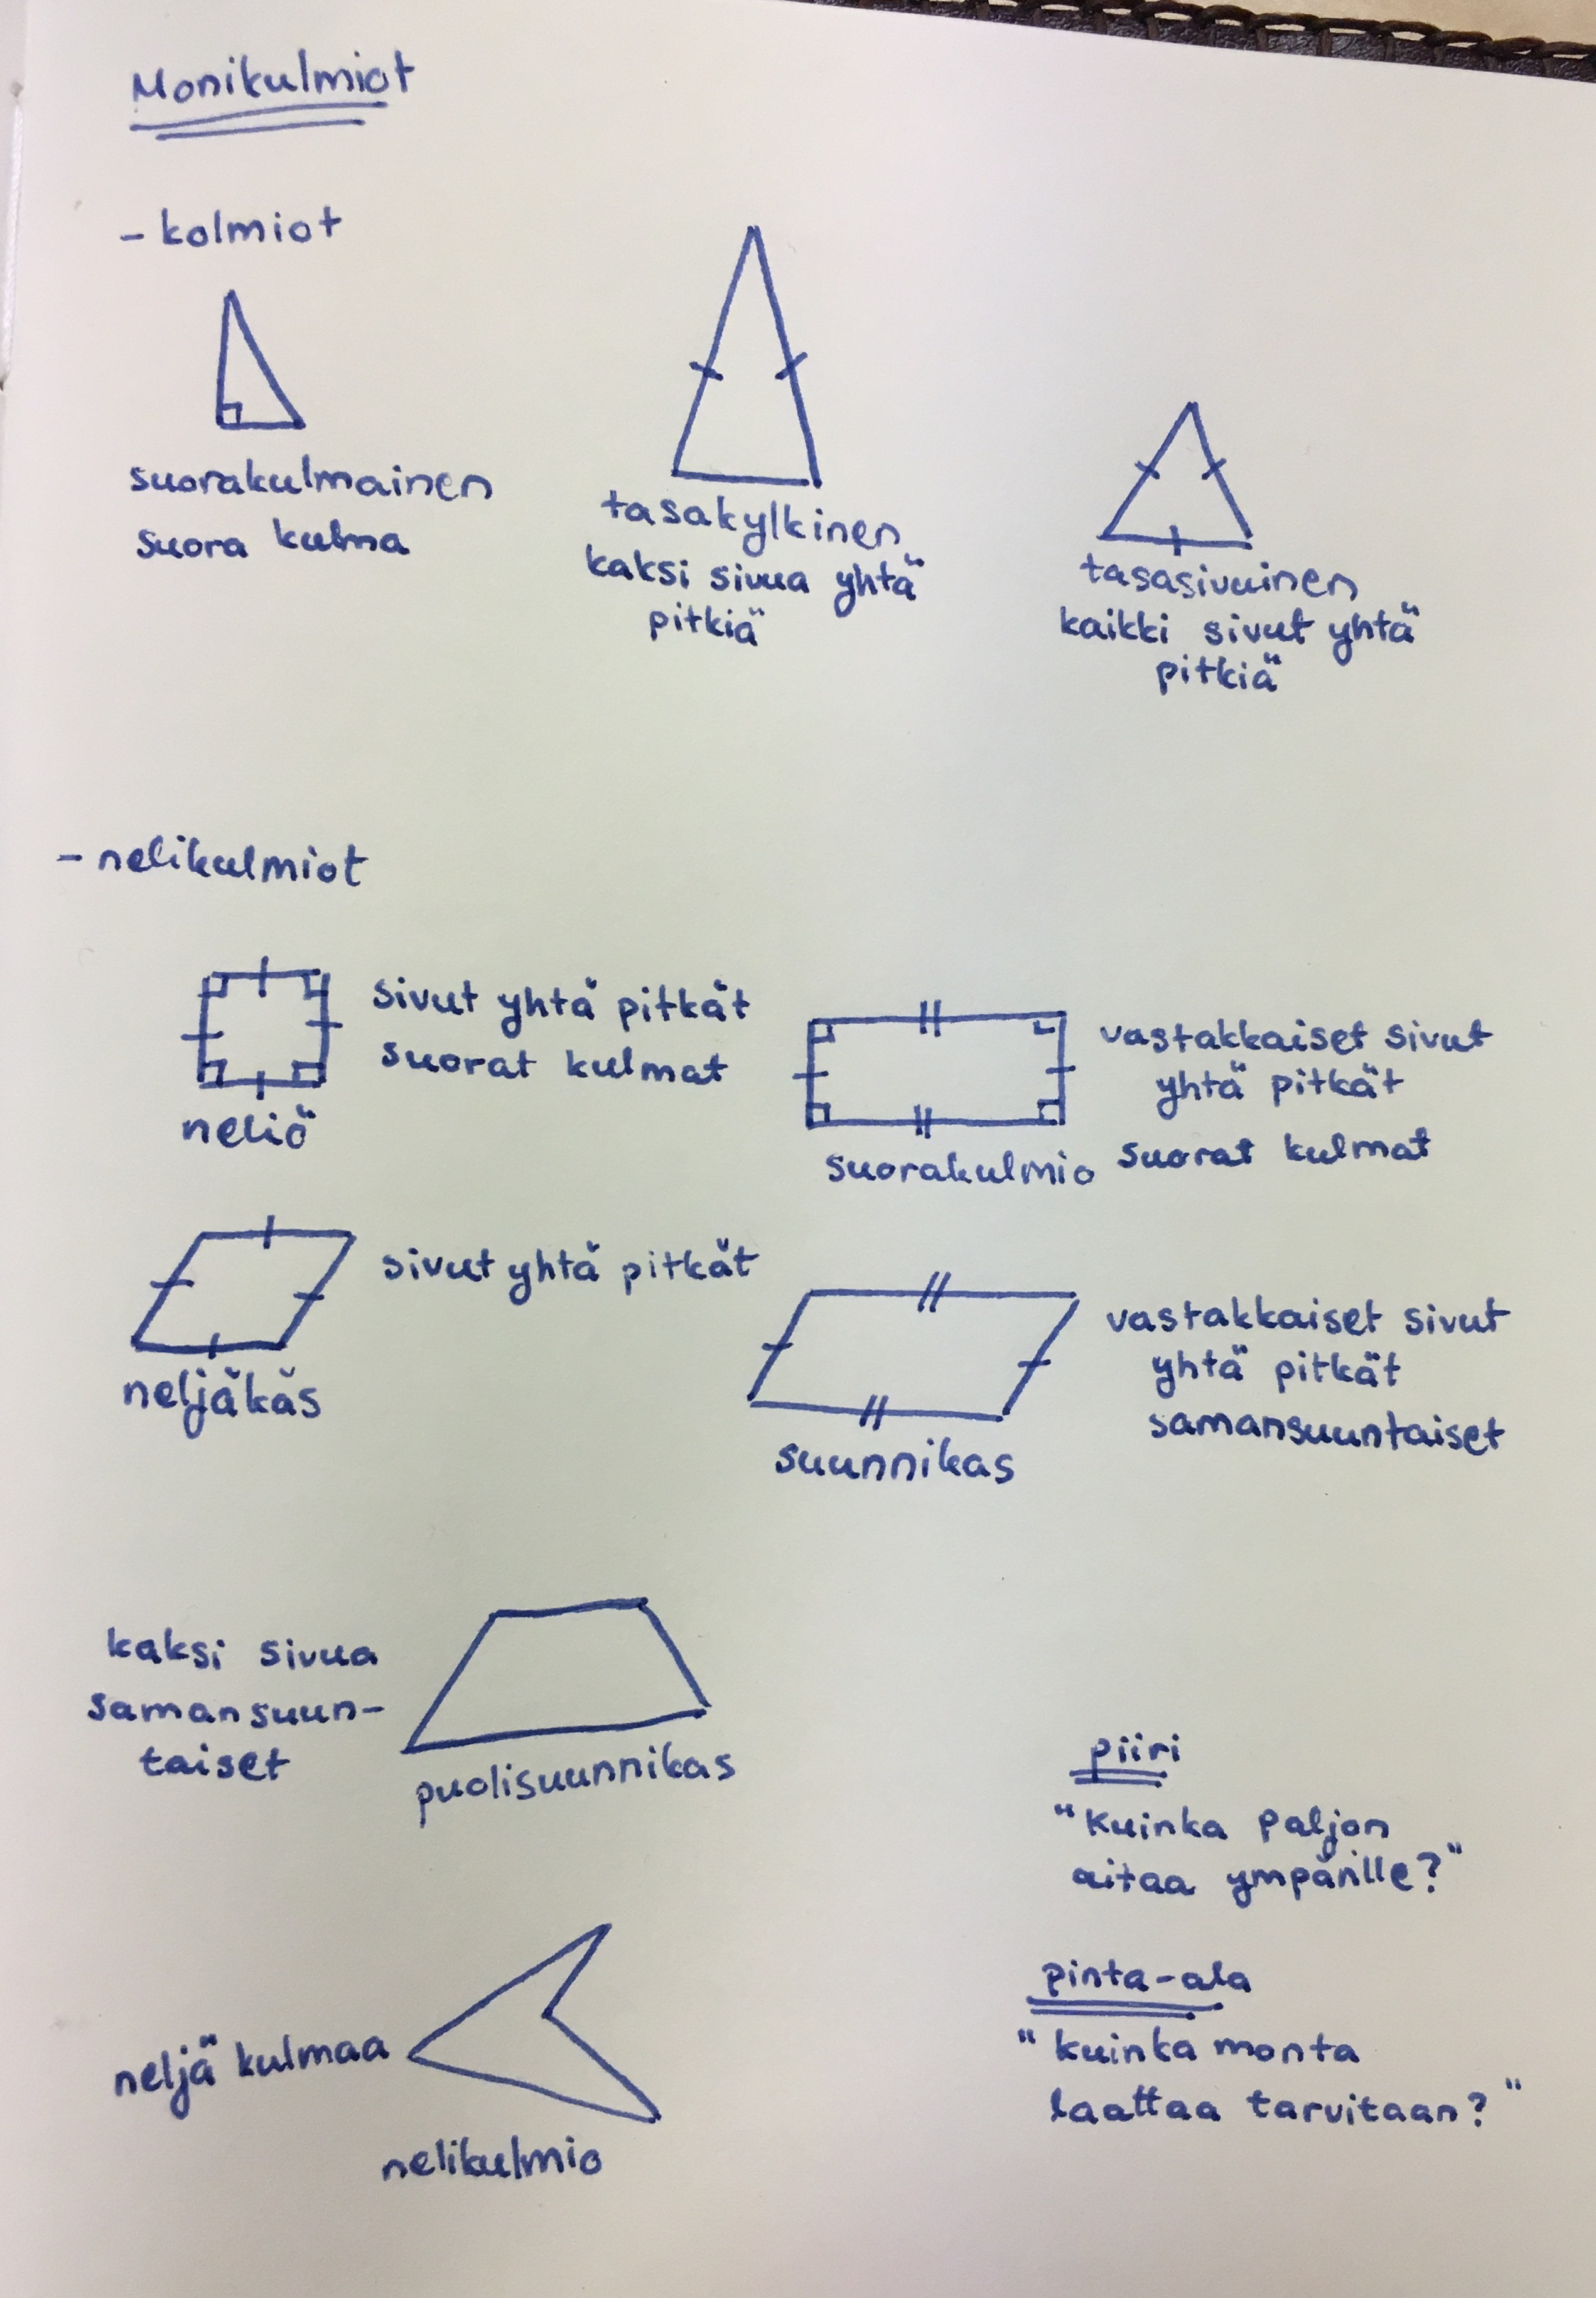 Monikulmiot
- kolmiot
suorakulmainen
suora kulma
tasakylkinen
kaksi sivua yhtä
pitkiä
tasasivuinen
kaikki sivut yhtä
pitkiä
- nelikulmiot
sivut yhtä pitkät
suorat kulmat
neliö
vastakkaiset sivut
yhtä pitkät
suorat kulmat
suorakulmio
sivut yhtä pitkät
neljäkäs
vastakkaiset sivut
yhtä pitkät
samansuuntaiset
suunnikas
kaksi sivua
samansuun-
taiset
puolisuunnikas
piiri
"Kuinka paljon
aitaa ympärille?"
neljä kulmaa
nelikulmio
pinta-ala
"kuinka monta
laattaa tarvitaan?"